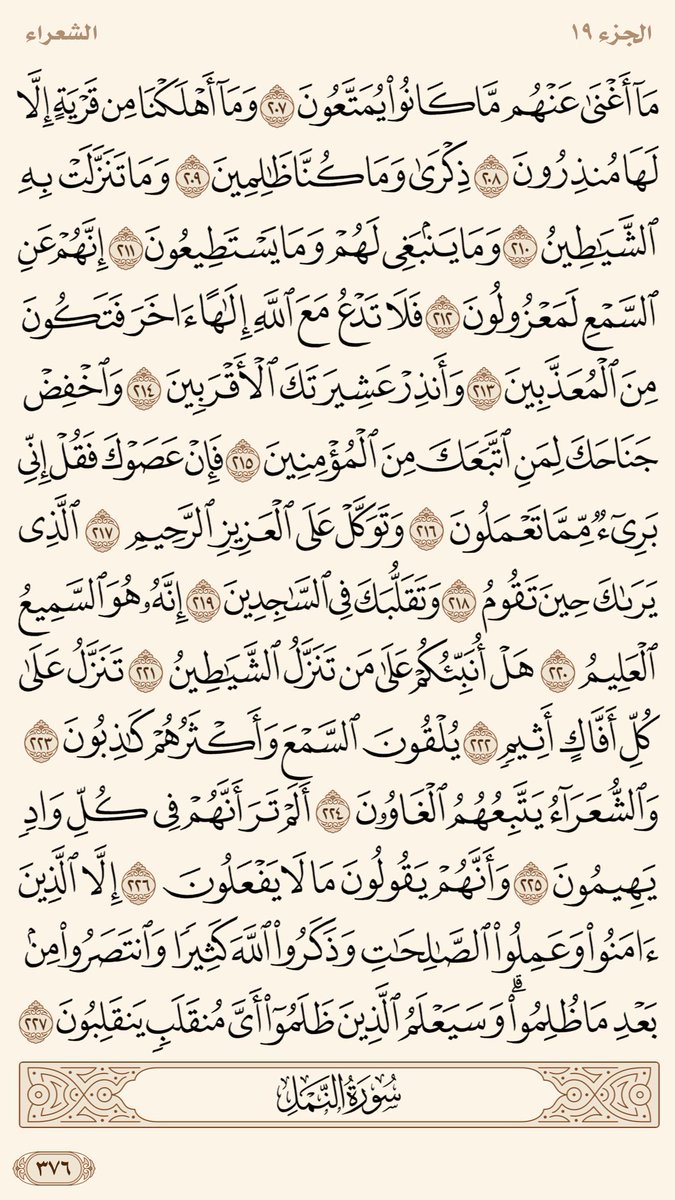 الجزء ١٩
الشعراء
مَآ أَغْنَىٰ عَنْهُم مَّا كَانُوا۟ يُمَتَّعُونَ ٢٠٧ وَمَآ أَهْلَكْنَا مِن قَرْيَةٍ إِلَّا
لَهَا مُنذِرُونَ ٢٠٨ ذِكْرَىٰ وَمَا كُنَّا ظَٰلِمِينَ ٢٠٩ وَمَا تَنَزَّلَتْ بِهِ
ٱلشَّيَٰطِينُ ٢١٠ وَمَا يَنۢبَغِى لَهُمْ وَمَا يَسْتَطِيعُونَ ٢١١ إِنَّهُمْ عَنِ
ٱلسَّمْعِ لَمَعْزُولُونَ ٢١٢ فَلَا تَدْعُ مَعَ ٱللَّهِ إِلَٰهًا ءَاخَرَ فَتَكُونَ
مِنَ ٱلْمُعَذَّبِينَ ٢١٣ وَأَنذِرْ عَشِيرَتَكَ ٱلْأَقْرَبِينَ ٢١٤ وَٱخْفِضْ
جَنَاحَكَ لِمَنِ ٱتَّبَعَكَ مِنَ ٱلْمُؤْمِنِينَ ٢١٥ فَإِنْ عَصَوْكَ فَقُلْ إِنِّى
بَرِىٓءٌ مِّمَّا تَعْمَلُونَ ٢١٦ وَتَوَكَّلْ عَلَى ٱلْعَزِيزِ ٱلرَّحِيمِ ٢١٧ ٱلَّذِى
يَرَىٰكَ حِينَ تَقُومُ ٢١٨ وَتَقَلُّبَكَ فِى ٱلسَّٰجِدِينَ ٢١٩ إِنَّهُۥ هُوَ ٱلسَّمِيعُ
ٱلْعَلِيمُ ٢٢٠ هَلْ أُنَبِّئُكُمْ عَلَىٰ مَن تَنَزَّلُ ٱلشَّيَٰطِينُ ٢٢١ تَنَزَّلُ عَلَىٰ
كُلِّ أَفَّاكٍ أَثِيمٍ ٢٢٢ يُلْقُونَ ٱلسَّمْعَ وَأَكْثَرُهُمْ كَٰذِبُونَ ٢٢٣
وَٱلشُّعَرَآءُ يَتَّبِعُهُمُ ٱلْغَاوُۥنَ ٢٢٤ أَلَمْ تَرَ أَنَّهُمْ فِى كُلِّ وَادٍ
يَهِيمُونَ ٢٢٥ وَأَنَّهُمْ يَقُولُونَ مَا لَا يَفْعَلُونَ ٢٢٦ إِلَّا ٱلَّذِينَ
ءَامَنُوا۟ وَعَمِلُوا۟ ٱلصَّٰلِحَٰتِ وَذَكَرُوا۟ ٱللَّهَ كَثِيرًا وَٱنتَصَرُوا۟ مِنۢ
بَعْدِ مَا ظُلِمُوا۟ۗ وَسَيَعْلَمُ ٱلَّذِينَ ظَلَمُوٓا۟ أَىَّ مُنقَلَبٍ يَنقَلِبُونَ ٢٢٧
سُورَةُ النَّمْلِ
٣٧٦